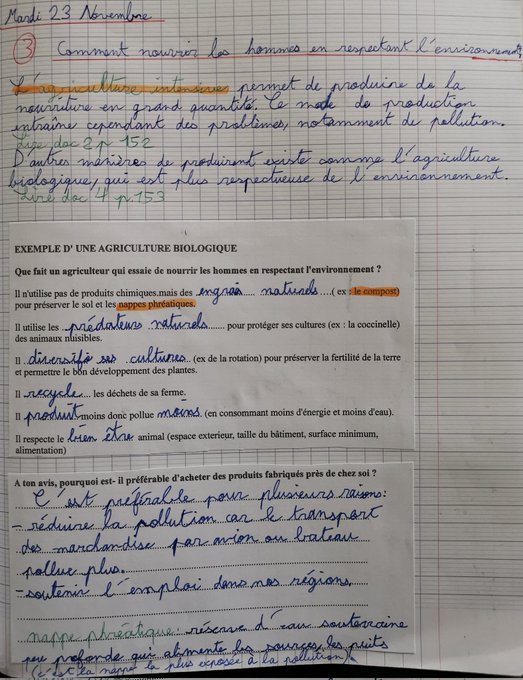 Mardi 23 Novembre
3 Comment nourrir les hommes en respectant l'environnement?
L'agriculture intensive permet de produire de la
nourriture en grand quantité. Ce mode de production
entraîne cependant des problèmes, notamment de pollution.
Lire doc 2 p 152
D'autres manières de produirent existe comme l'agriculture
biologique, qui est plus respectueuse de l'environnement.
Lire doc 4 p.153
EXEMPLE D' UNE AGRICULTURE BIOLOGIQUE
Que fait un agriculteur qui essaie de nourrir les hommes en respectant l'environnement ?
Il n'utilise pas de produits chimiques.mais des engrais naturels ....( ex : le compost)
pour préserver le sol et les nappes phréatiques.
Il utilise les prédateurs naturels....... pour protéger ses cultures (ex : la coccinelle)
des animaux nuisibles.
Il diversifie ses cultures.. (ex de la rotation) pour préserver la fertilité de la terre
et permettre le bon développement des plantes.
Il recycle.... les déchets de sa ferme.
Il produit moins donc pollue moins. (en consommant moins d'énergie et moins d'eau).
Il respecte le bien être animal (espace exterieur, taille du bâtiment, surface minimum,
alimentation)
A ton avis, pourquoi est- il préférable d'acheter des produits fabriqués près de chez soi ?
C'est préférable pour plusieurs raisons:
- réduire la pollution car le transport
des marchandise par avion ou bateau
pollue plus.
- soutenir l'emploi dans nos régions.
nappe phréatique: réserve d'eau souterraine
peu profonde qui alimente les sources, les puits
(c'est la nappe la plus exposée à la pollution).